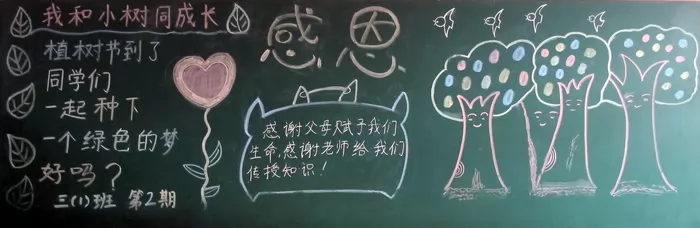 我和小树同成长
植树节到了
同学们
一起种下
一个绿色的梦
好吗？
三(1)班 第2期
感恩
感谢父母赋予我们
生命,感谢老师给我们
传授知识！